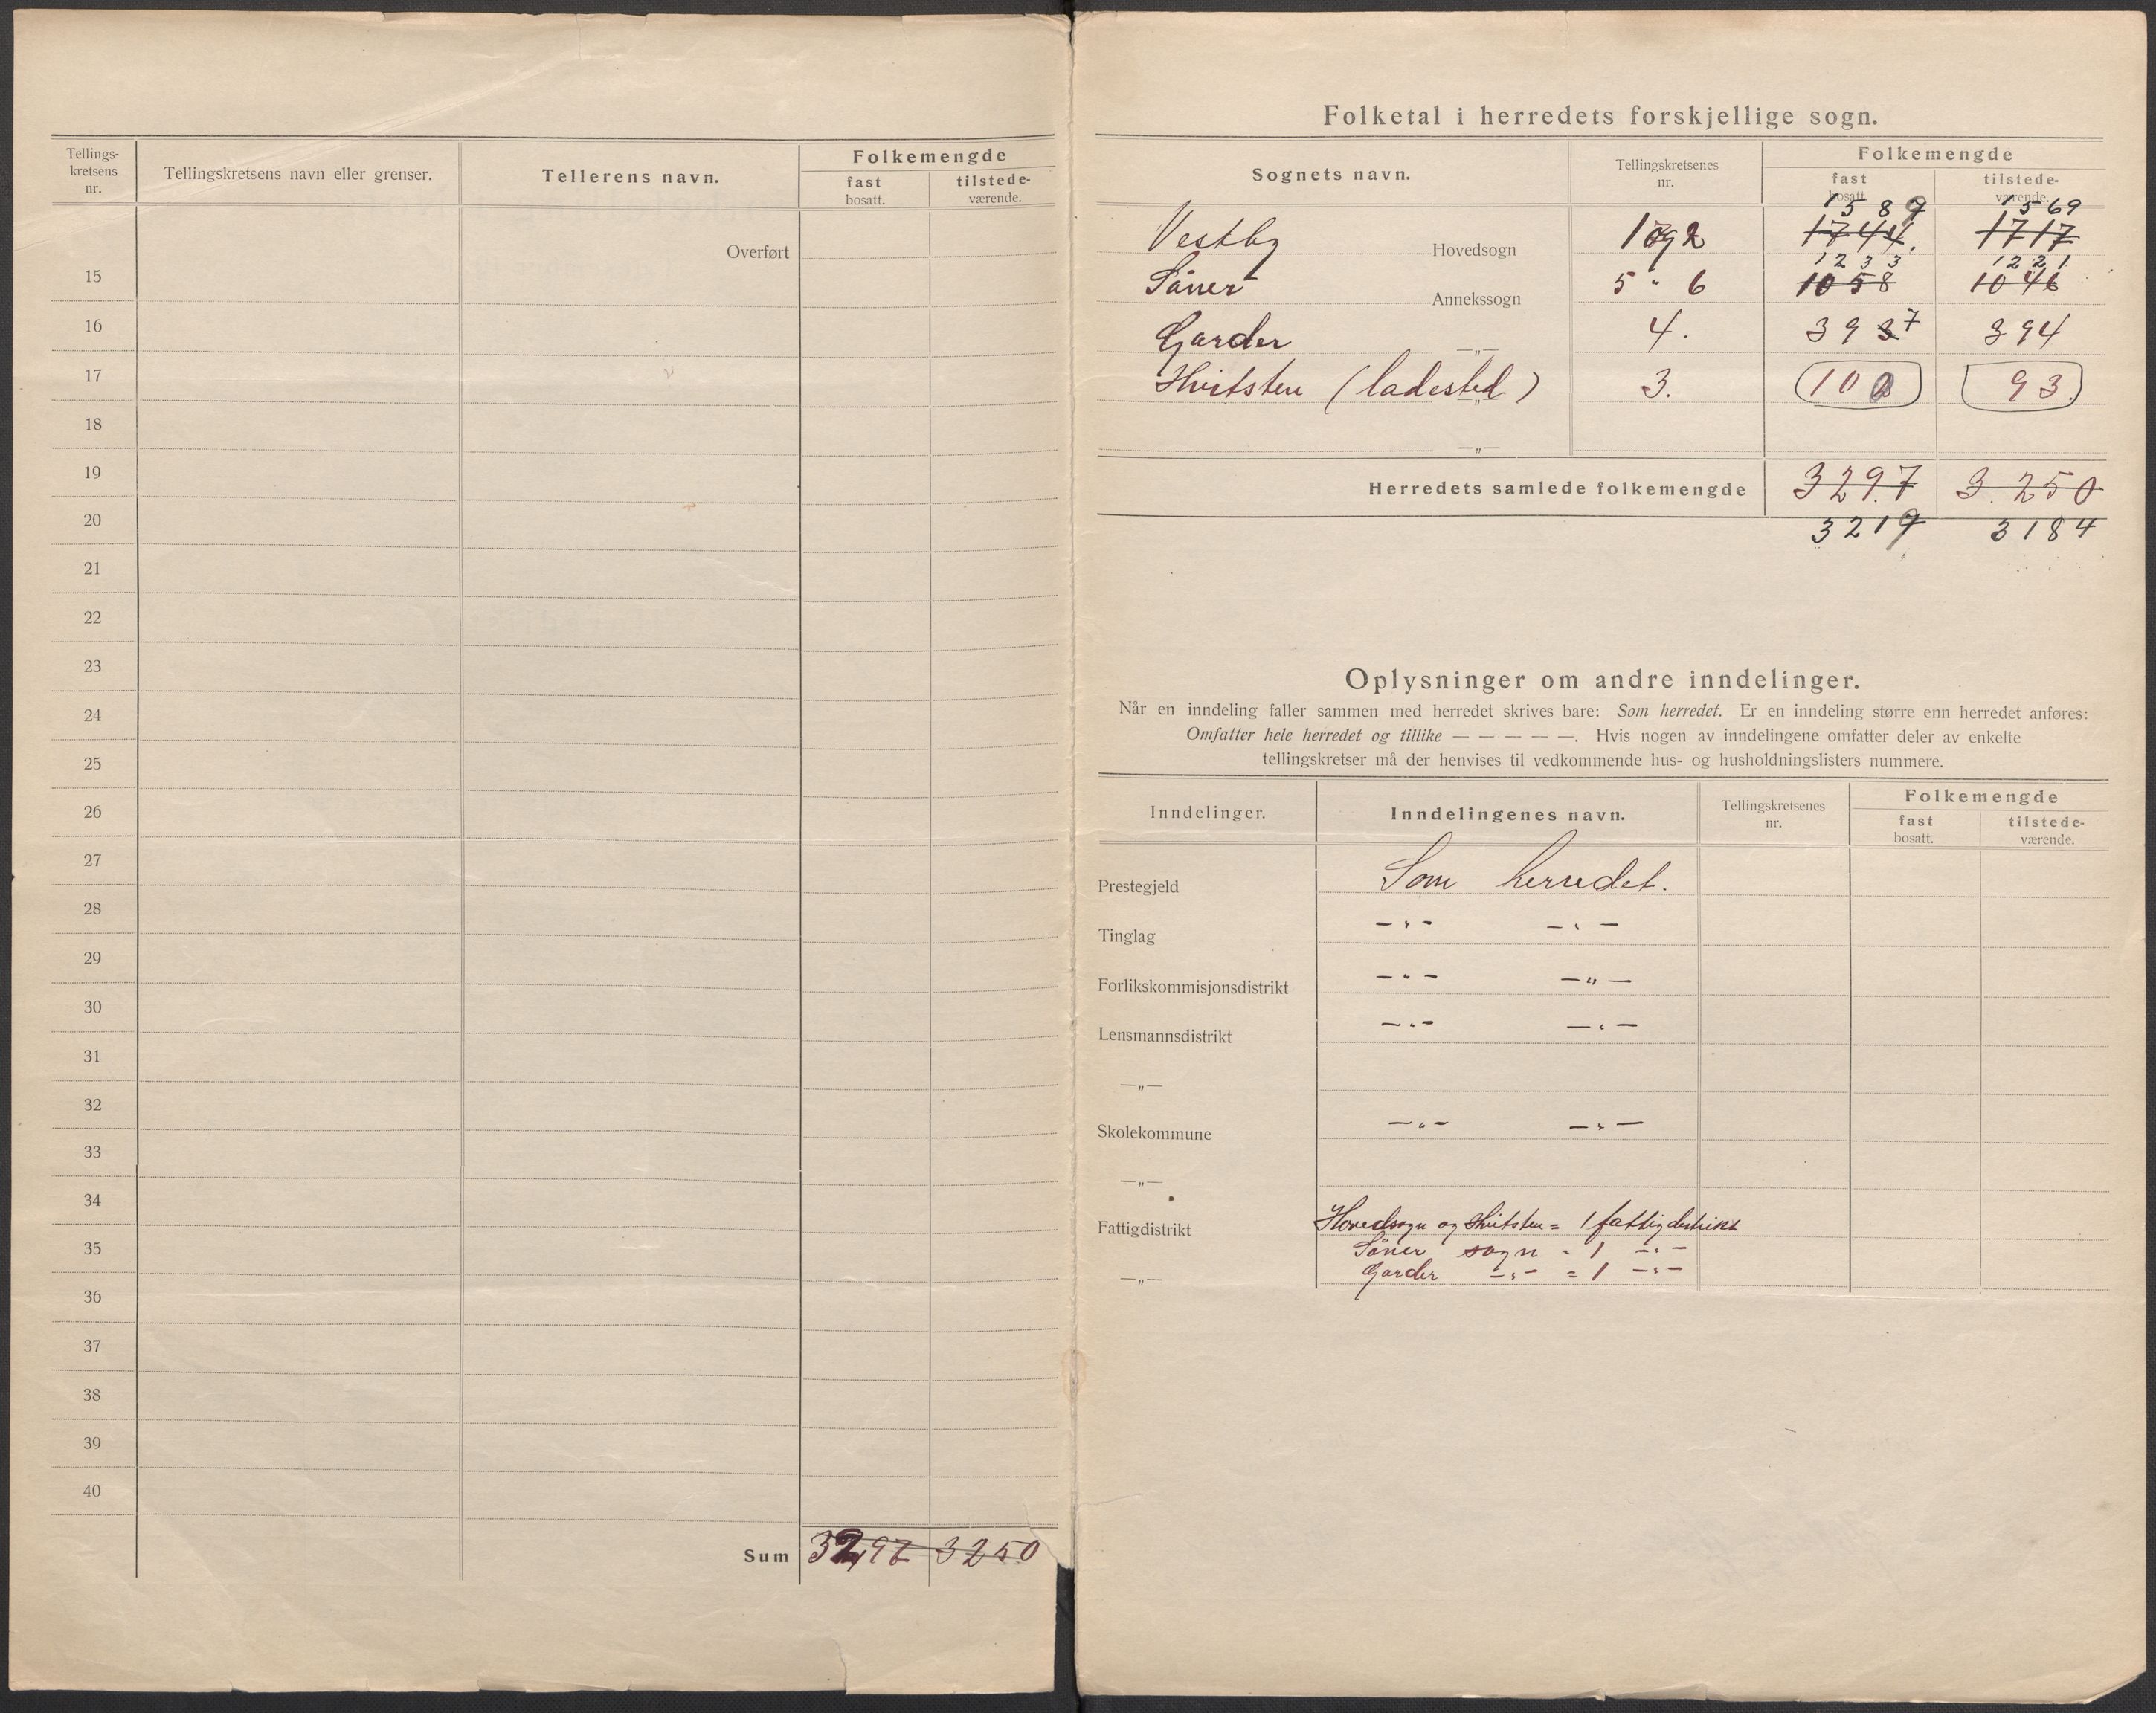 Tellings-
kretsens
nr.
Tellingskretsens navn eller grenser.
Tellerens navn.
Folkemengde
fast
bosatt.
tilstede-
værende.
Overført
15
16
17
18
19
20
21
22
23
24
25
26
27
28
29
30
31
32
33
34
35
36
37
38
39
40
Sum 3297 3250
Folketal i herredets forskjellige sogn.
Sognets navn.
Tellingskretsenes
nr.
Folkemengde
fast
bosatt.
tilstede-
værende.
1589 1569
Vestby Hovedsogn 1 og 2 1744. 1717
1233 1221
Såner Annekssogn 5 " 6 1058 1046
Garder —„— 4. 3937 394
Hvitsten (ladested) —„— 3. 93
—„—
Herredets samlede folkemengde 3297 3250
3219 3184
Oplysninger om andre inndelinger.
Når en inndeling faller sammen med herredet skrives bare: Som herredet. Er en inndeling større enn herredet anføres:
Omfatter hele herredet og tillike — — — — —. Hvis nogen av inndelingene omfatter deler av enkelte
tellingskretser må der henvises til vedkommende hus- og husholdningslisters nummere.
Inndelinger.
Inndelingenes navn.
Tellingskretsenes
nr.
Folkemengde
fast
bosatt.
tilstede-
værende.
Prestegjeld Som herredet.
Tinglag —"— —"—
Forlikskommisjonsdistrikt —"— —"—
Lensmannsdistrikt —"— —"—
—„—
Skolekommune —"— —"—
—„—
Fattigdistrikt Hovedsogn og Hvitsten = 1 fattigdistrikt
Såner sogn = 1 —"—
—„— Garder —"— = 1 —"—